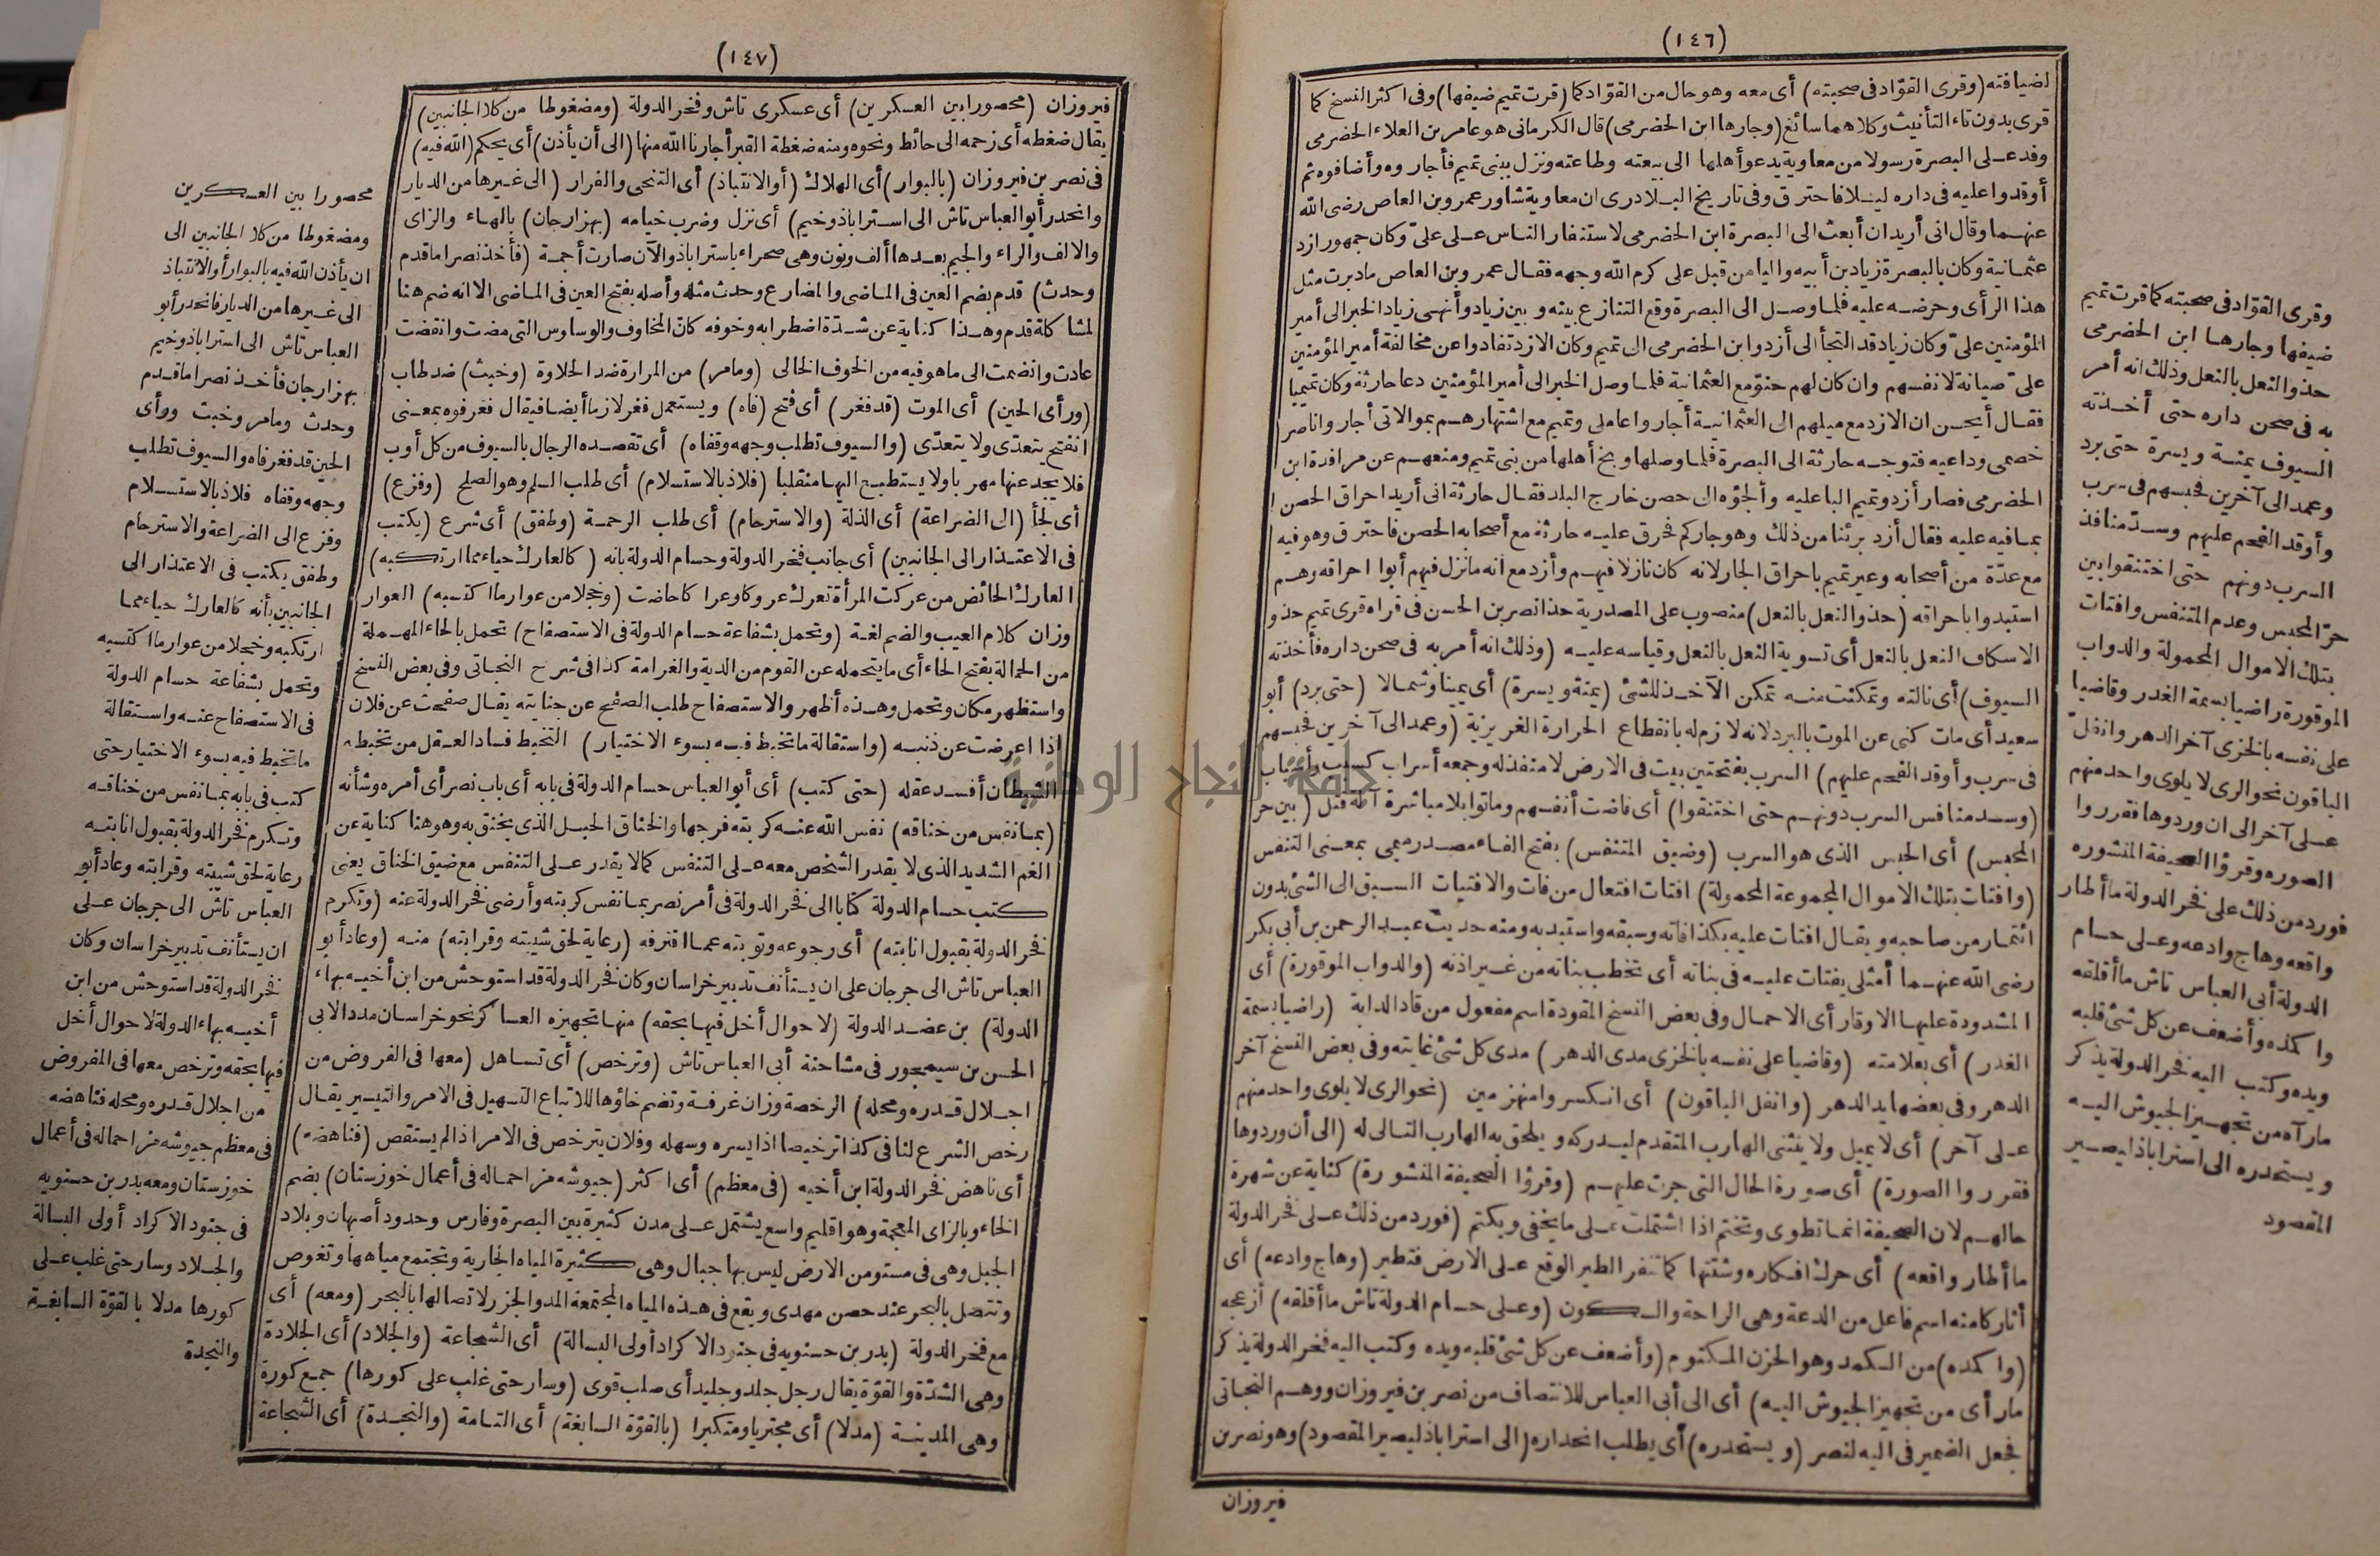 (١٤٦)
لضيافته (وقرى القوّاد فى صحبته) أى معه وهو حال من القوّاد كما (قرت تميم ضيفها) وفى اكثر النسخ كما
قرى بدون تاء التأنيث وكلاهما سائغ (وجارها ابن الحضرمى) قال الكرمانى هو عامر بن العلاء الحضرمى
وفد على البصرة رسولا من معاوية يدعو أهلها الى بيعته وطاعته ونزل ببنى تميم فأجاروه وأضافوه ثم
أوقدوا عليه فى داره ليلا فاحترق وفى تاريخ البلادرى ان معاوية شاور عمرو بن العاص رضى الله
عنهما وقال انى أريد ان أبعث الى البصرة ابن الحضرمى لاستنفار الناس على علىّ وكان جمهور ازد
عثمانية وكان بالبصرة زياد بن أبيه واليا من قبل على كرم الله وجهه فقال عمرو بن العاص ما دبرت مثل
هذا الرأى وحرضه عليه فلما وصل الى البصرة وقع التنازع بينه وبين زياد وأنهى زياد الخبر الى أمير
المؤمنين علىّ وكان زياد قد التجأ الى أزد وابن الحضرمى الى تميم وكان الازد تفادوا عن مخالفة أمير المؤمنين
علىّ صيانة لانفسهم وان كان لهم حنوّ مع العثمانية فلما وصل الخبر الى أمير المؤمنين دعا حارثة وكان تميميا
فقال أيحسن ان الازد مع ميلهم الى العثمانية أجاروا عاملى وتميم مع اشتهارهم بموالاتى أجاروا ناصر
خصمى وداعيه فتوجه حارثة الى البصرة فلما وصلها وبخ أهلها من بنى تميم ومنعهم عن مرافدة ابن
الحضرمى فصار أزد وتميم البا عليه وألجؤه الى حصن خارج البلد فقال حارثة انى أريد احراق الحصن
بما فيه عليه فقال أزد برئنا من ذلك وهو جاركم فحرق عليه حارثة مع أصحابه الحصن فاحترق وهو فيه
مع عدّة من أصحابه وعير تميم باحراق الجار لانه كان نازلا فيهم وأزد مع أنه ما نزل فيهم أبوا احراقه وهم
استبدوا باحراقه (حذو النعل بالنعل) منصوب على المصدرية حذا نصر بن الحسن فى قراه قرى تميم حذو
الاسكاف النعل بالنعل أى تسوية النعل بالنعل وقياسه عليه (وذلك انه أمر به فى صحن داره فأخذته
السيوف) أى نالته وتمكنت منه تمكن الآخذ للشئ (يمنة ويسرة) أى يمينا وشمالا (حتى برد) أبو
سعيد أى مات كنى عن الموت بالبرد لانه لازم له بانقطاع الحرارة الغريزية (وعمد الى آخرين فحبسهم
فى سرب وأوقد الفحم عليهم) السرب بفتحتين بيت فى الارض لا منفذ له وجمعه أسراب كسبب وأسباب
(وسد منافس السرب دونهم حتى اختنقوا) أى فاضت أنفسهم وماتوا بلا مباشرة آلة قتل (بين حر
المحبس) أى الحبس الذى هو السرب (وضيق المتنفس) بفتح الفاء مصدر ميمى بمعنى التنفس
(وافتات بتلك الاموال المجموعة المحمولة) افتات افتعال من فات والافتيات السبق الى الشئ بدون
ائتمار من صاحبه ويقال افتات عليه بكذا فاته وسبقه واستبد به ومنه حديث عبد الرحمن بن أبى بكر
رضى الله عنهما أمثلى يفتات عليه فى بناته أى تخطب بناته من غير اذنه (والدواب الموقورة) أى
المشدودة عليها الاوقار أى الاحمال وفى بعض النسخ المقودة اسم مفعول من قاد الدابة (راضيا بسمة
الغدر) أى بعلامته (وقاضيا على نفسه بالخزى مدى الدهر) مدى كل شئ غايته وفى بعض النسخ آخر
الدهر وفى بعضها يد الدهر (وانفل الباقون) أى انكسروا منهزمين (نحو الرى لا يلوى واحد منهم
على آخر) أى لا يميل ولا ينثنى الهارب المتقدم ليدركه ويلحق به الهارب التالى له (الى أن وردوها
فقرروا الصورة) أى صورة الحال التى جرت عليهم (وقرؤا الصحيفة المنشورة) كناية عن شهرة
حالهم لان الصحيفة انما تطوى وتختم اذا اشتملت على ما يخفى ويكتم (فورد من ذلك على فخر الدولة
ما أطار واقعه) أى حرك افكاره وشتتها كما تنفر الطير الوقع على الارض فتطير (وهاج وادعه) أى
أثار كامنه اسم فاعل من الدعة وهى الراحة والسكون (وعلى حسام الدولة تاش ما أقلقه) أزعجه
(واكمده) من الكمد وهو الحزن المكتوم (وأضعف عن كل شئ قلبه ويده وكتب اليه فخر الدولة يذكر
ما رأى من تجهيز الجيوش اليه) أى الى أبى العباس للانتصاف من نصر بن فيروزان ووهم النجاتى
فجعل الضمير فى اليه لنصر (ويستحدره) أى يطلب انحداره (الى استراباذ ليصير المقصود) وهو نصر بن
فيروزان
وقرى القوّاد فى صحبته كما قرت تميم
ضيفها وجارها ابن الحضرمى
حذو النعل بالنعل وذلك انه أمر
به فى صحن داره حتى أخذته
السيوف يمنة ويسرة حتى برد
وعمد الى آخرين فحبسهم فى سرب
وأوقد الفحم عليهم وسدّ منافذ
السرب دونهم حتى اختنقوا بين
حرّ المحبس وعدم المتنفس وافتات
بتلك الاموال المحمولة والدواب
الموقورة راضيا بسمة الغدر وقاضيا
على نفسه بالخزى آخر الدهر وانفلّ
الباقون نحو الرى لا يلوى واحد منهم
على آخر الى ان وردوها فقرروا
الصوره وقرؤا الصحيفة المنشوره
فورد من ذلك على فخر الدولة ما أطار
واقعه وهاج وادعه وعلى حسام
الدولة أبى العباس تاش ما أقلقه
واكمده وأضعف عن كل شئ قلبه
ويده وكتب اليه فخر الدولة يذكر
ما رآه من تجهيز الجيوش اليه
ويستحدره الى استراباذ ليصير
المقصود
(١٤٧)
فيروزان (محصورا بين العسكرين) أى عسكرى تاش وفخر الدولة (ومضغوطا من كلا الجانبين)
يقال ضغطه أى زحمه الى حائط ونحوه ومنه ضغطة القبر أجارنا الله منها (الى أن يأذن) أى يحكم (الله فيه)
فى نصر بن فيروزان (بالبوار) أى الهلاك (أو الانتباذ) أى التنحى والفرار (الى غيرها من الديار
وانحدر أبو العباس تاش الى استراباذ وخيم) أى نزل وضرب خيامه (بهزارجان) بالهاء والزاى
والالف والراء والجيم بعدها ألف ونون وهى صحراء باستراباذ والآن صارت أجمة (فأخذ نصرا ما قدم
وحدث) قدم بضم العين فى الماضى والمضارع وحدث مثله وأصله بفتح العين فى الماضى الا انه ضم هنا
لمشاكلة قدم وهذا كناية عن شدّة اضطرابه وخوفه كان المخاوف والوساوس التى مضت وانقضت
عادت وانضمت الى ما هو فيه من الخوف الحالى (وما مر) من المرارة ضد الحلاوة (وخبث) ضد طاب
(ورأى الحين) أى الموت (قد فغر) أى فتح (فاه) ويستعمل فغر لازما أيضا فيقال فغر فوه بمعنى
انفتح يتعدّى ولا يتعدّى (والسيوف تطلب وجهه وقفاه) أى تقصده الرجال بالسيوف من كل أوب
فلا يجد عنها مهربا ولا يستطيع اليها منقلبا (فلاذ بالاستسلام) أى طلب السلم وهو الصلح (وفزع)
أى لجأ (الى الضراعة) أى الذلة (والاسترحام) أى طلب الرحمة (وطفق) أى شرع (يكتب
فى الاعتذار الى الجانبين) أى جانب فخر الدولة وحسام الدولة بانه (كالعارك حياء مما ارتكبه)
العارك الحائض من عركت المرأة تعرك عروكا وعراكا حاضت (وخجلا من عوار ما اكتسبه) العوار
وزان كلام العيب والضم لغة (وتحمل بشفاعة حسام الدولة فى الاستصفاح) تحمل بالحاء المهملة
من الحمالة بفتح الحاء أى ما يتحمله عن القوم من الدية والغرامة كذا فى شرح النجاتى وفى بعض النسخ
واستظهر مكان وتحمل وهذه أظهر والاستصفاح طلب الصفح عن جنايته يقال صفحت عن فلان
اذا اعرضت عن ذنبه (واستقالة ما تخبط فيه بسوء الاختيار) التخبط فساد العقل من تخبطه
الشيطان أفسد عقله (حتى كتب) أى أبو العباس حسام الدولة فى بابه أى باب نصر أى أمره وشأنه
(بما نفس من خناقه) نفس الله عنه كربته فرجها والخناق الحبل الذى يخنق به وهو هنا كناية عن
الغم الشديد الذى لا يقدر الشخص معه على التنفس كما لا يقدر على التنفس مع ضيق الخناق يعنى
كتب حسام الدولة كتابا الى فخر الدولة فى أمر نصر بما نفس كربته وأرضى فخر الدولة عنه (وتكرم
فخر الدولة بقبول انابته) أى رجوعه وتوبته عما اقترفه (رعاية لحق شيبته وقرابته) منه (وعاد أبو
العباس تاش الى جرجان على ان يستأنف تدبير خراسان وكان فخر الدولة قد استوحش من ابن أخيه بهاء
الدولة) بن عضد الدولة (لاحوال أخل فيها بحقه) منها تجهيزه العساكر نحو خراسان مددا لابى
الحسن بن سيمجور فى مشاحنة أبى العباس تاش (وترخص) أى تساهل (معها فى الفروض من
اجلال قدره ومحله) الرخصة وزان غرفة وتضم خاؤها للاتباع التسهيل فى الامر والتيسير يقال
رخص الشرع لنا فى كذا ترخيصا اذا يسره وسهله وفلان يترخص فى الامر اذا لم يستقص (فناهضه)
أى ناهض فخر الدولة ابن أخيه (فى معظم) أى اكثر (جيوشه مزاحما له فى أعمال خوزستان) بضم
الخاء وبالزاى المعجمة وهو اقليم واسع يشتمل على مدن كثيرة بين البصرة وفارس وحدود أصبهان وبلاد
الجبل وهى فى مستو من الارض ليس بها جبال وهى كثيرة المياه الجارية وتجتمع مياهها وتغوص
وتتصل بالبحر عند حصن مهدى ويقع فى هذه المياه المجتمعة المد والجزر لاتصالها بالبحر (ومعه) أى
مع فخر الدولة (بدر بن حسنويه فى جنود الاكراد أولى البسالة) أى الشجاعة (والجلاد) أى الجلادة
وهى الشدّة والقوّة يقال رجل جلد وجليد أى صلب قوى (وسار حتى غلب على كورها) جمع كورة
وهى المدينة (مدلا) أى مجتريا ومتكبرا (بالقوّة السابغة) أى التامة (والنجدة) أى الشجاعة
محصورا بين العسكرين
ومضغوطا من كلا الجانبين الى
ان يأذن الله فيه بالبوار أو الانتباذ
الى غيرها من الديار فانحدر أبو
العباس تاش الى استراباذ وخيم
بهزارجان فأخذ نصرا ما قدم
وحدث وما مر وخبث ورأى
الحين قد فغر فاه والسيوف تطلب
وجهه وقفاه فلاذ بالاستسلام
وفزع الى الضراعة والاسترحام
وطفق يكتب فى الاعتذار الى
الجانبين بأنه كالعارك حياء مما
ارتكبه وخجلا من عوار ما اكتسبه
وتحمل بشفاعة حسام الدولة
فى الاستصفاح عنه واستقالة
ما تخبط فيه بسوء الاختيار حتى
كتب فى بابه بما نفس من خناقه
وتكرم فخر الدولة بقبول انابته
رعاية لحق شيبته وقرابته وعاد أبو
العباس تاش الى جرجان على
ان يستأنف تدبير خراسان وكان
فخر الدولة قد استوحش من ابن
أخيه بهاء الدولة لاحوال أخل
فيها بحقه وترخص معها فى المفروض
من اجلال قدره ومحله فناهضه
فى معظم جيوشه مزاحما له فى أعمال
خوزستان ومعه بدر بن حسنويه
فى جنود الاكراد أولى البسالة
والجلاد وسار حتى غلب على
كورها مدلا بالقوّة السابغة
والنجدة
جامعة النجاح الوطنية